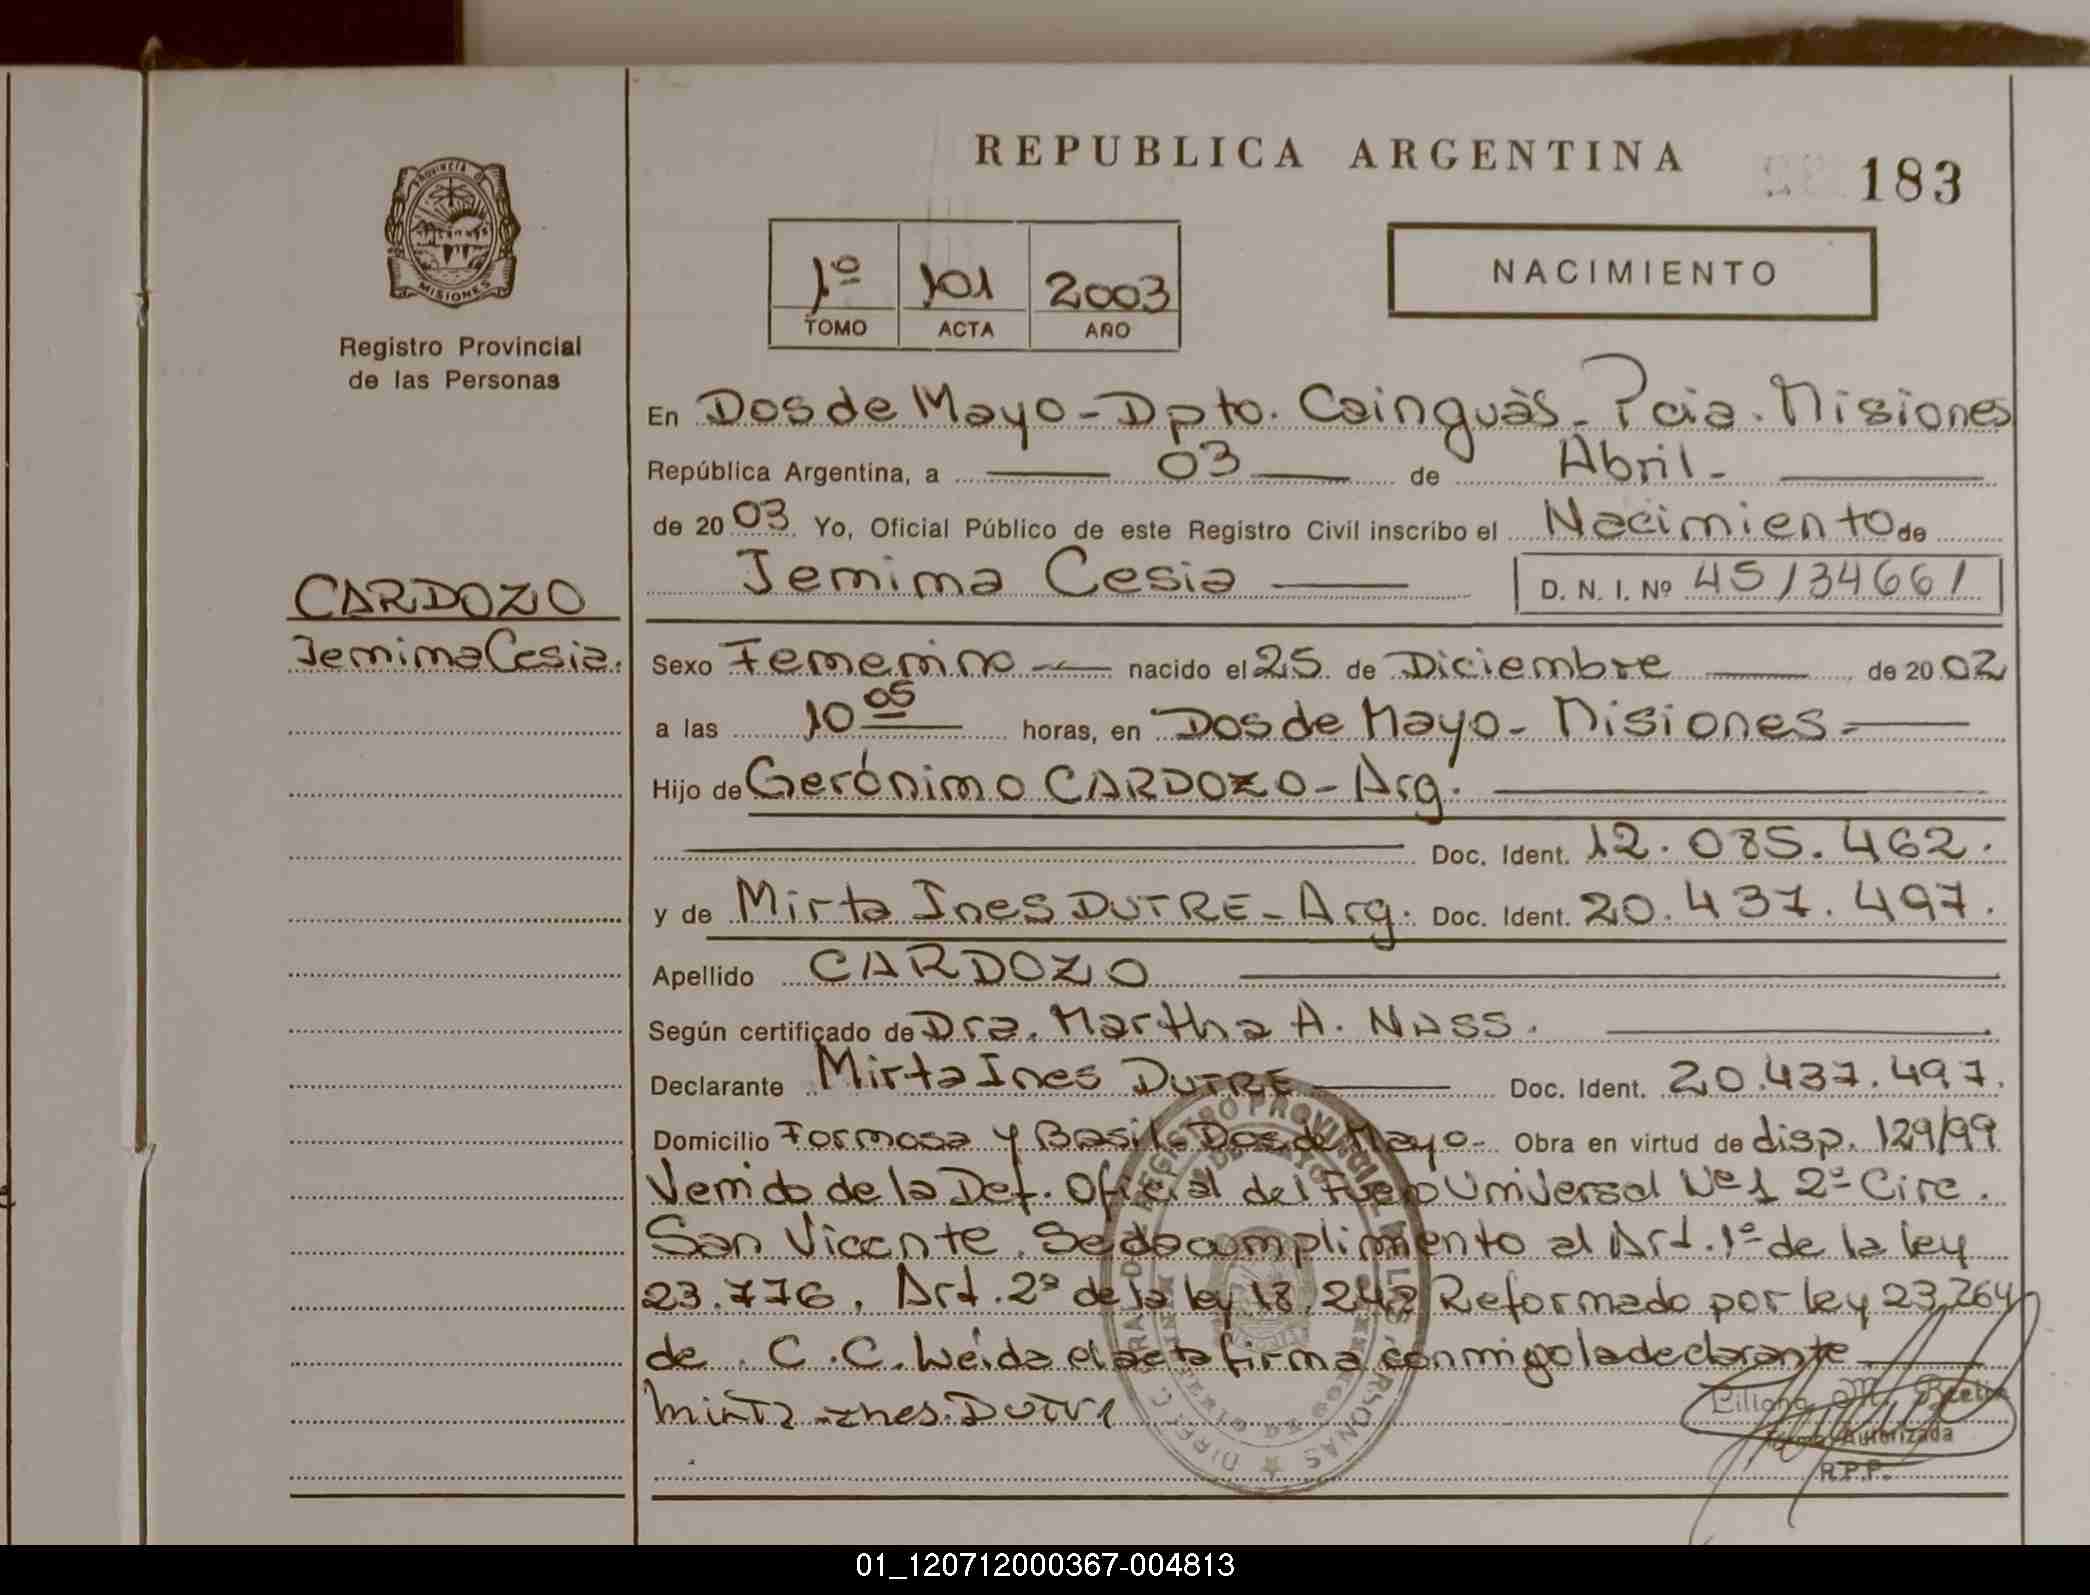 REPUBLICA ARGENTINA
183
PROVINCIA D
MISIONES
Registro Provincial
de las Personas
1º 101 2003
TOMO ACTA AÑO
NACIMIENTO
En Dos de Mayo - Dpto. Cainguàs - Pcia. Misiones
República Argentina, a 03 de Abril -
de 2003 Yo, Oficial Público de este Registro Civil inscribo el Nacimiento de
Jemima Cesia D. N. I. Nº 45134661
CARDOZO
Jemima Cesia.
Sexo Femenino nacido el 25 de Diciembre de 2002
a las 10 05 horas, en Dos de Mayo - Misiones -
Hijo de Gerónimo CARDOZO - Arg.
Doc. Ident. 12.085.462.
y de Mirta Ines DUTRE - Arg. Doc. Ident. 20.437.497.
Apellido CARDOZO
Según certificado de Dra. Martha A. NASS.
Declarante Mirta Ines DUTRE Doc. Ident. 20.437.497.
Domicilio Formosa y Basil - Dos de Mayo - Obra en virtud de disp. 129/99
Venido de la Def. Oficial del Fuero Universal Nº 1 2ª Circ.
San Vicente. Se da cumplimiento al Art. 1º de la ley
23.776, Art. 2º de la ley 18.248 Reformado por ley 23.264
de C.C. Leída el acta firma conmigo la declarante
Mirta Ines Dutre
Liliana M.
Firma Autorizada
R.P.P.
01_120712000367-004813